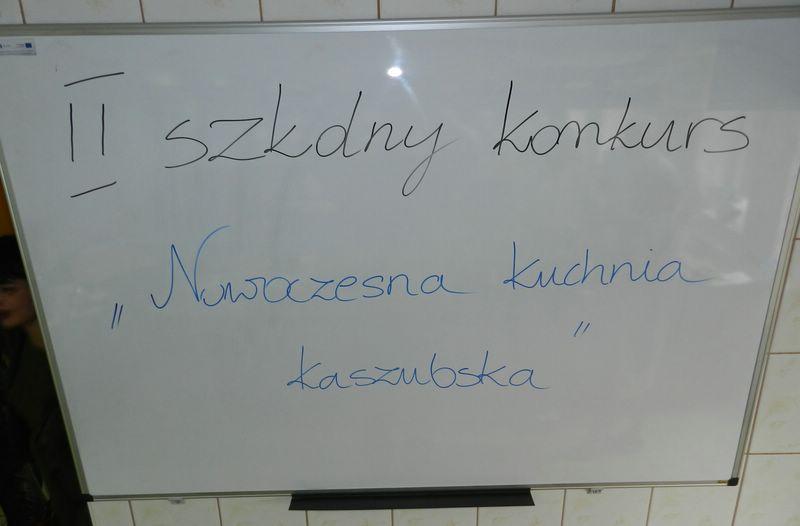 II szkolny konkurs
„Nowoczesna kuchnia
kaszubska"